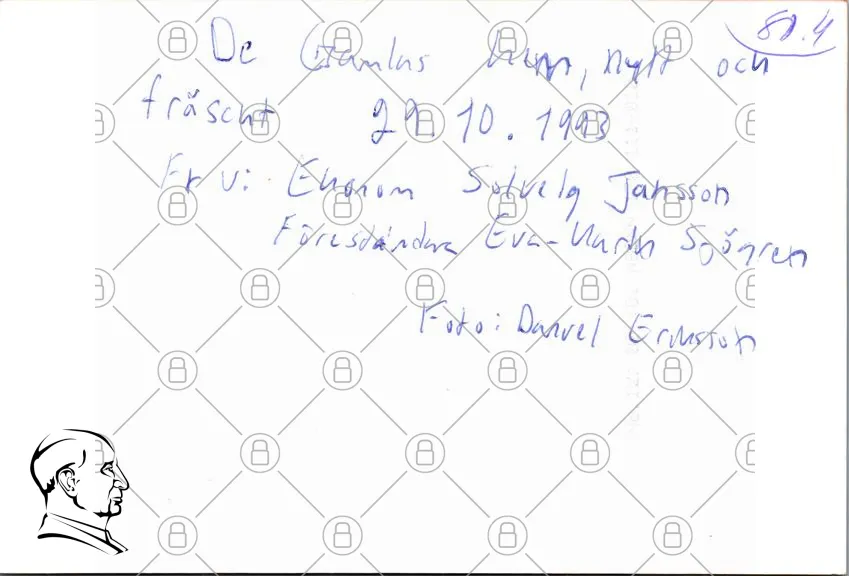 80.4
De Gamlas hem, nytt och
fräscht 29.10.1993
Fr v: Ekonom Solveig Jansson
Föreståndare Eva-Marie Sjögren
Foto: Daniel Eriksson